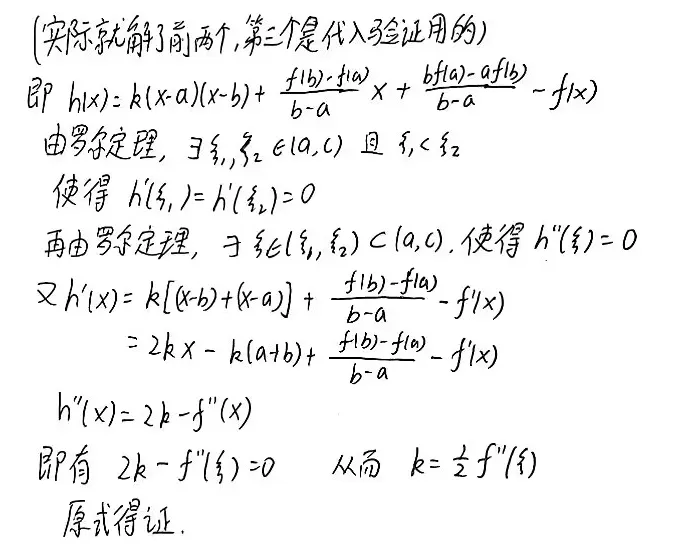 (实际就解了前两个,第三个是代入验证用的)
即 h(x)=k(x-a)(x-b)+ \frac{f(b)-f(a)}{b-a} x + \frac{bf(a)-af(b)}{b-a} - f(x)
由罗尔定理, ∃ξ₁,ξ₂∈(a,c) 且 ξ₁<ξ₂
使得 h'(ξ₁)=h'(ξ₂)=0
再由罗尔定理, ∃ξ∈(ξ₁,ξ₂)⊂(a,c). 使得 h''(ξ)=0
又h'(x)=k[(x-b)+(x-a)]+ \frac{f(b)-f(a)}{b-a} - f'(x)
=2kx-k(a+b)+ \frac{f(b)-f(a)}{b-a} - f'(x)
h''(x)=2k-f''(x)
即有 2k-f''(ξ)=0 从而 k=\frac{1}{2}f''(ξ)
原式得证.